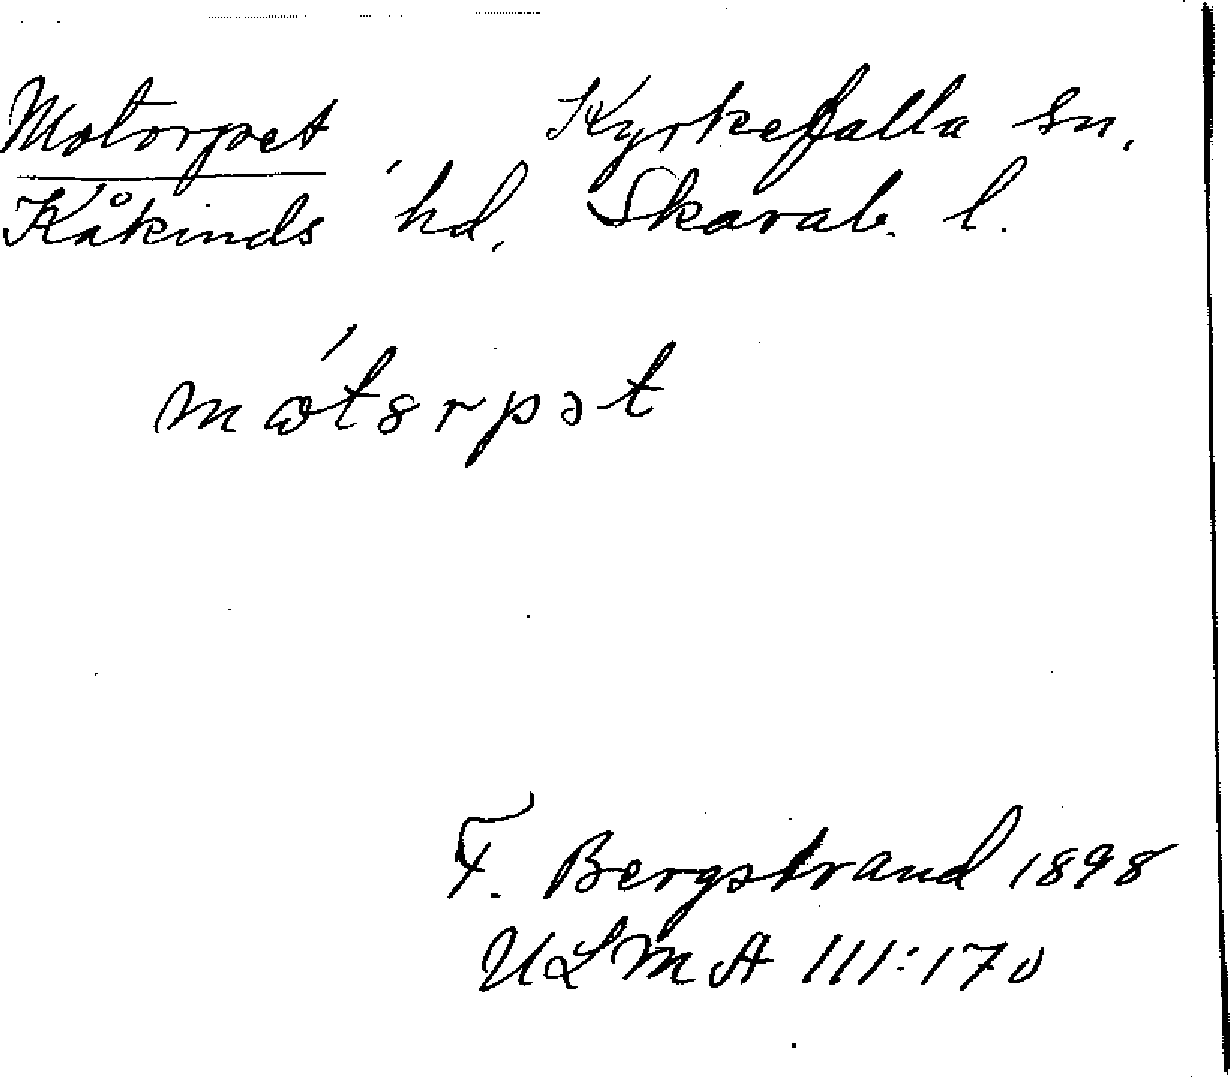 Motorpet Kyrkefalla sn.
Kåkinds hd. Skarab. l.
mɷ́t8rpət
F. Bergstrand 1898
ULMA 111:170